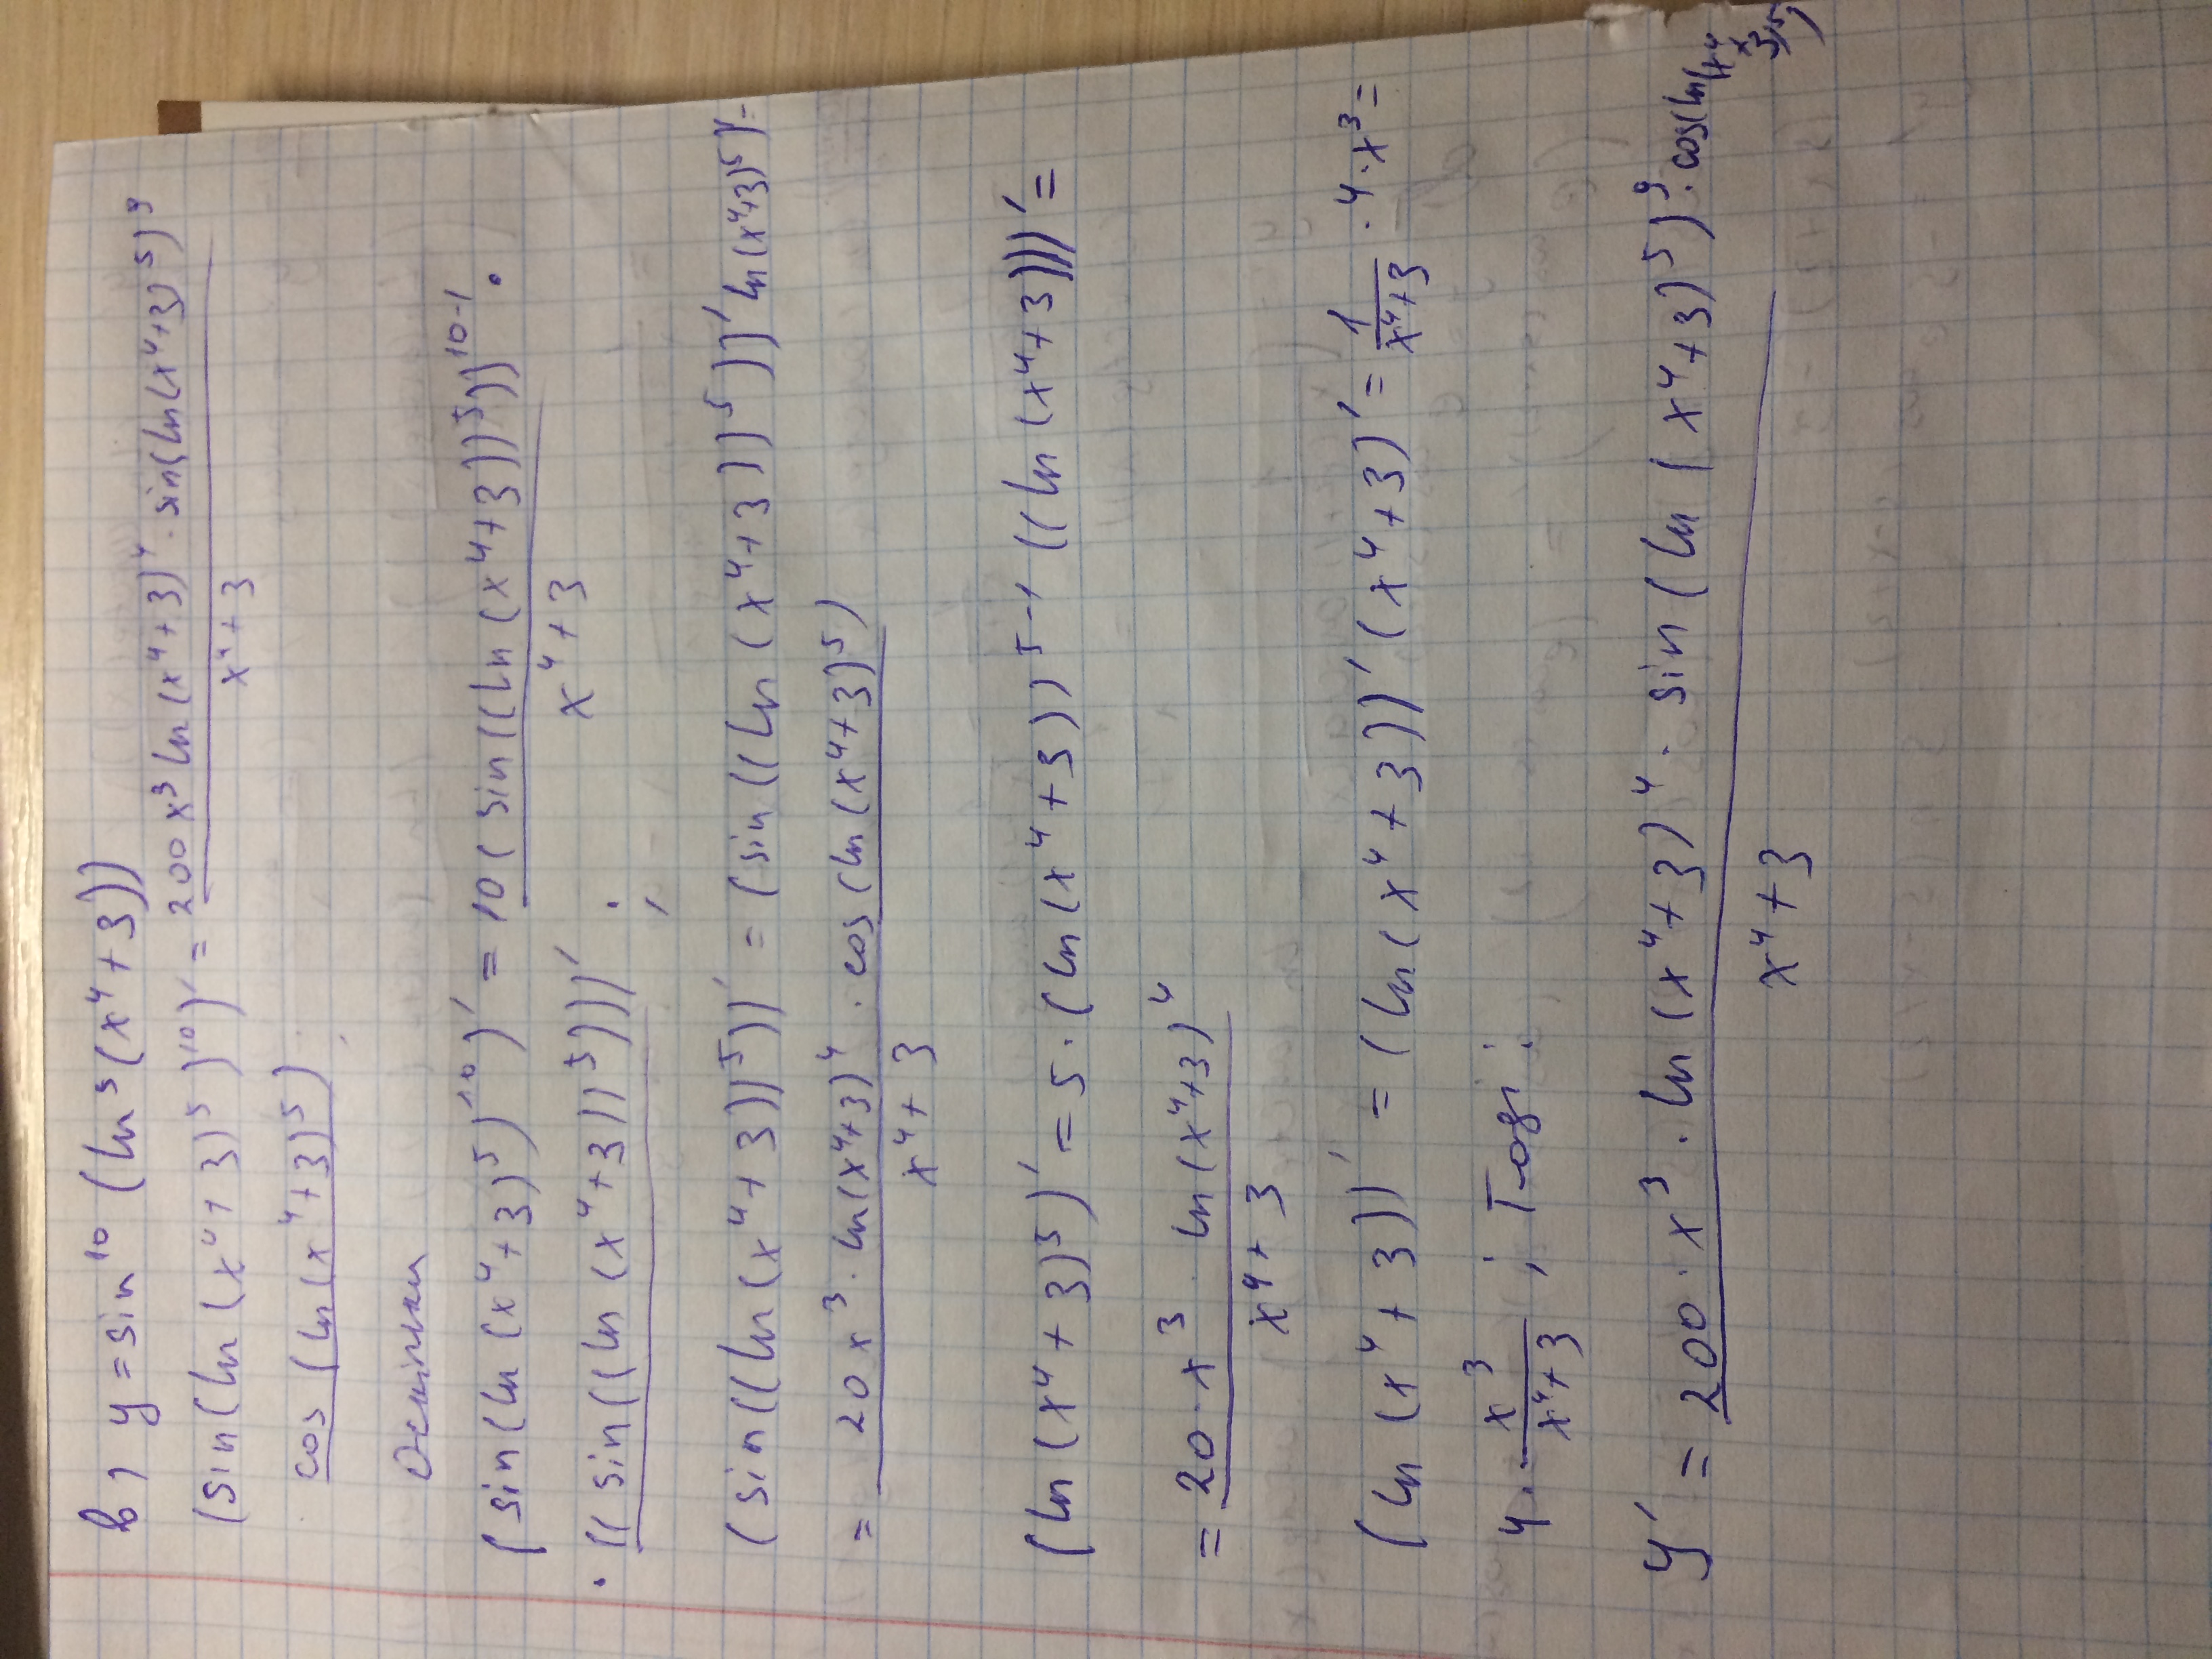 в) y = sin¹⁰ (ln⁵(x⁴+3))
(sin(ln(x⁴+3)⁵)¹⁰)′ = (200x³ ln(x⁴+3)⁴ · sin(ln(x⁴+3)⁵)⁹)/(x⁴+3)
cos(ln(x⁴+3)⁵)
Оскільки
(sin(ln(x⁴+3)⁵)¹⁰)′ = (10(sin((ln(x⁴+3))⁵))¹⁰⁻¹)/(x⁴+3) ·
· ((sin((ln(x⁴+3))⁵)))′ ;
(sin((ln(x⁴+3))⁵))′ = (sin((ln(x⁴+3))⁵))′ ln(x⁴+3)⁵)′ =
= (20x³ · ln(x⁴+3)⁴ · cos(ln(x⁴+3)⁵))/(x⁴+3)
(ln(x⁴+3)⁵)′ = 5 · (ln(x⁴+3))⁵⁻¹ ((ln(x⁴+3)))′ =
= (20 · x³ · ln(x⁴+3)⁴)/(x⁴+3)
(ln(x⁴+3))′ = (ln(x⁴+3))′ (x⁴+3)′ = 1/(x⁴+3) · 4 · x³ =
4 · x³/(x⁴+3) ; Тоді :
y′ = (200 · x³ · ln(x⁴+3)⁴ · sin(ln(x⁴+3)⁵)⁹ · cos(ln(x⁴+3)⁵))/(x⁴+3)